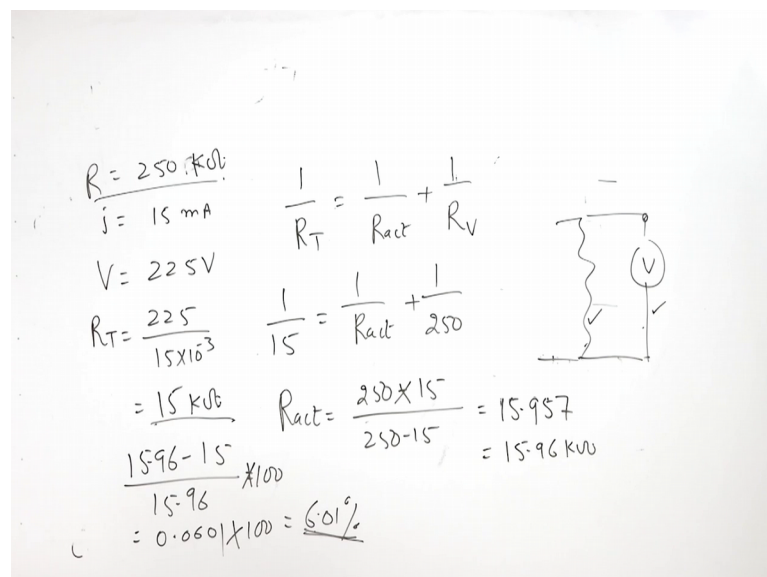 R = 250 KΩ
j = 15 mA
V = 225V
RT = 225 / 15×10^-3
= 15 KΩ
15.96 - 15 / 15.96 ×100
= 0.0601×100 = 6.01%
1/RT = 1/Ract + 1/RV
1/15 = 1/Ract + 1/250
Ract = 250×15 / 250-15 = 15.957
= 15.96 KΩ
V